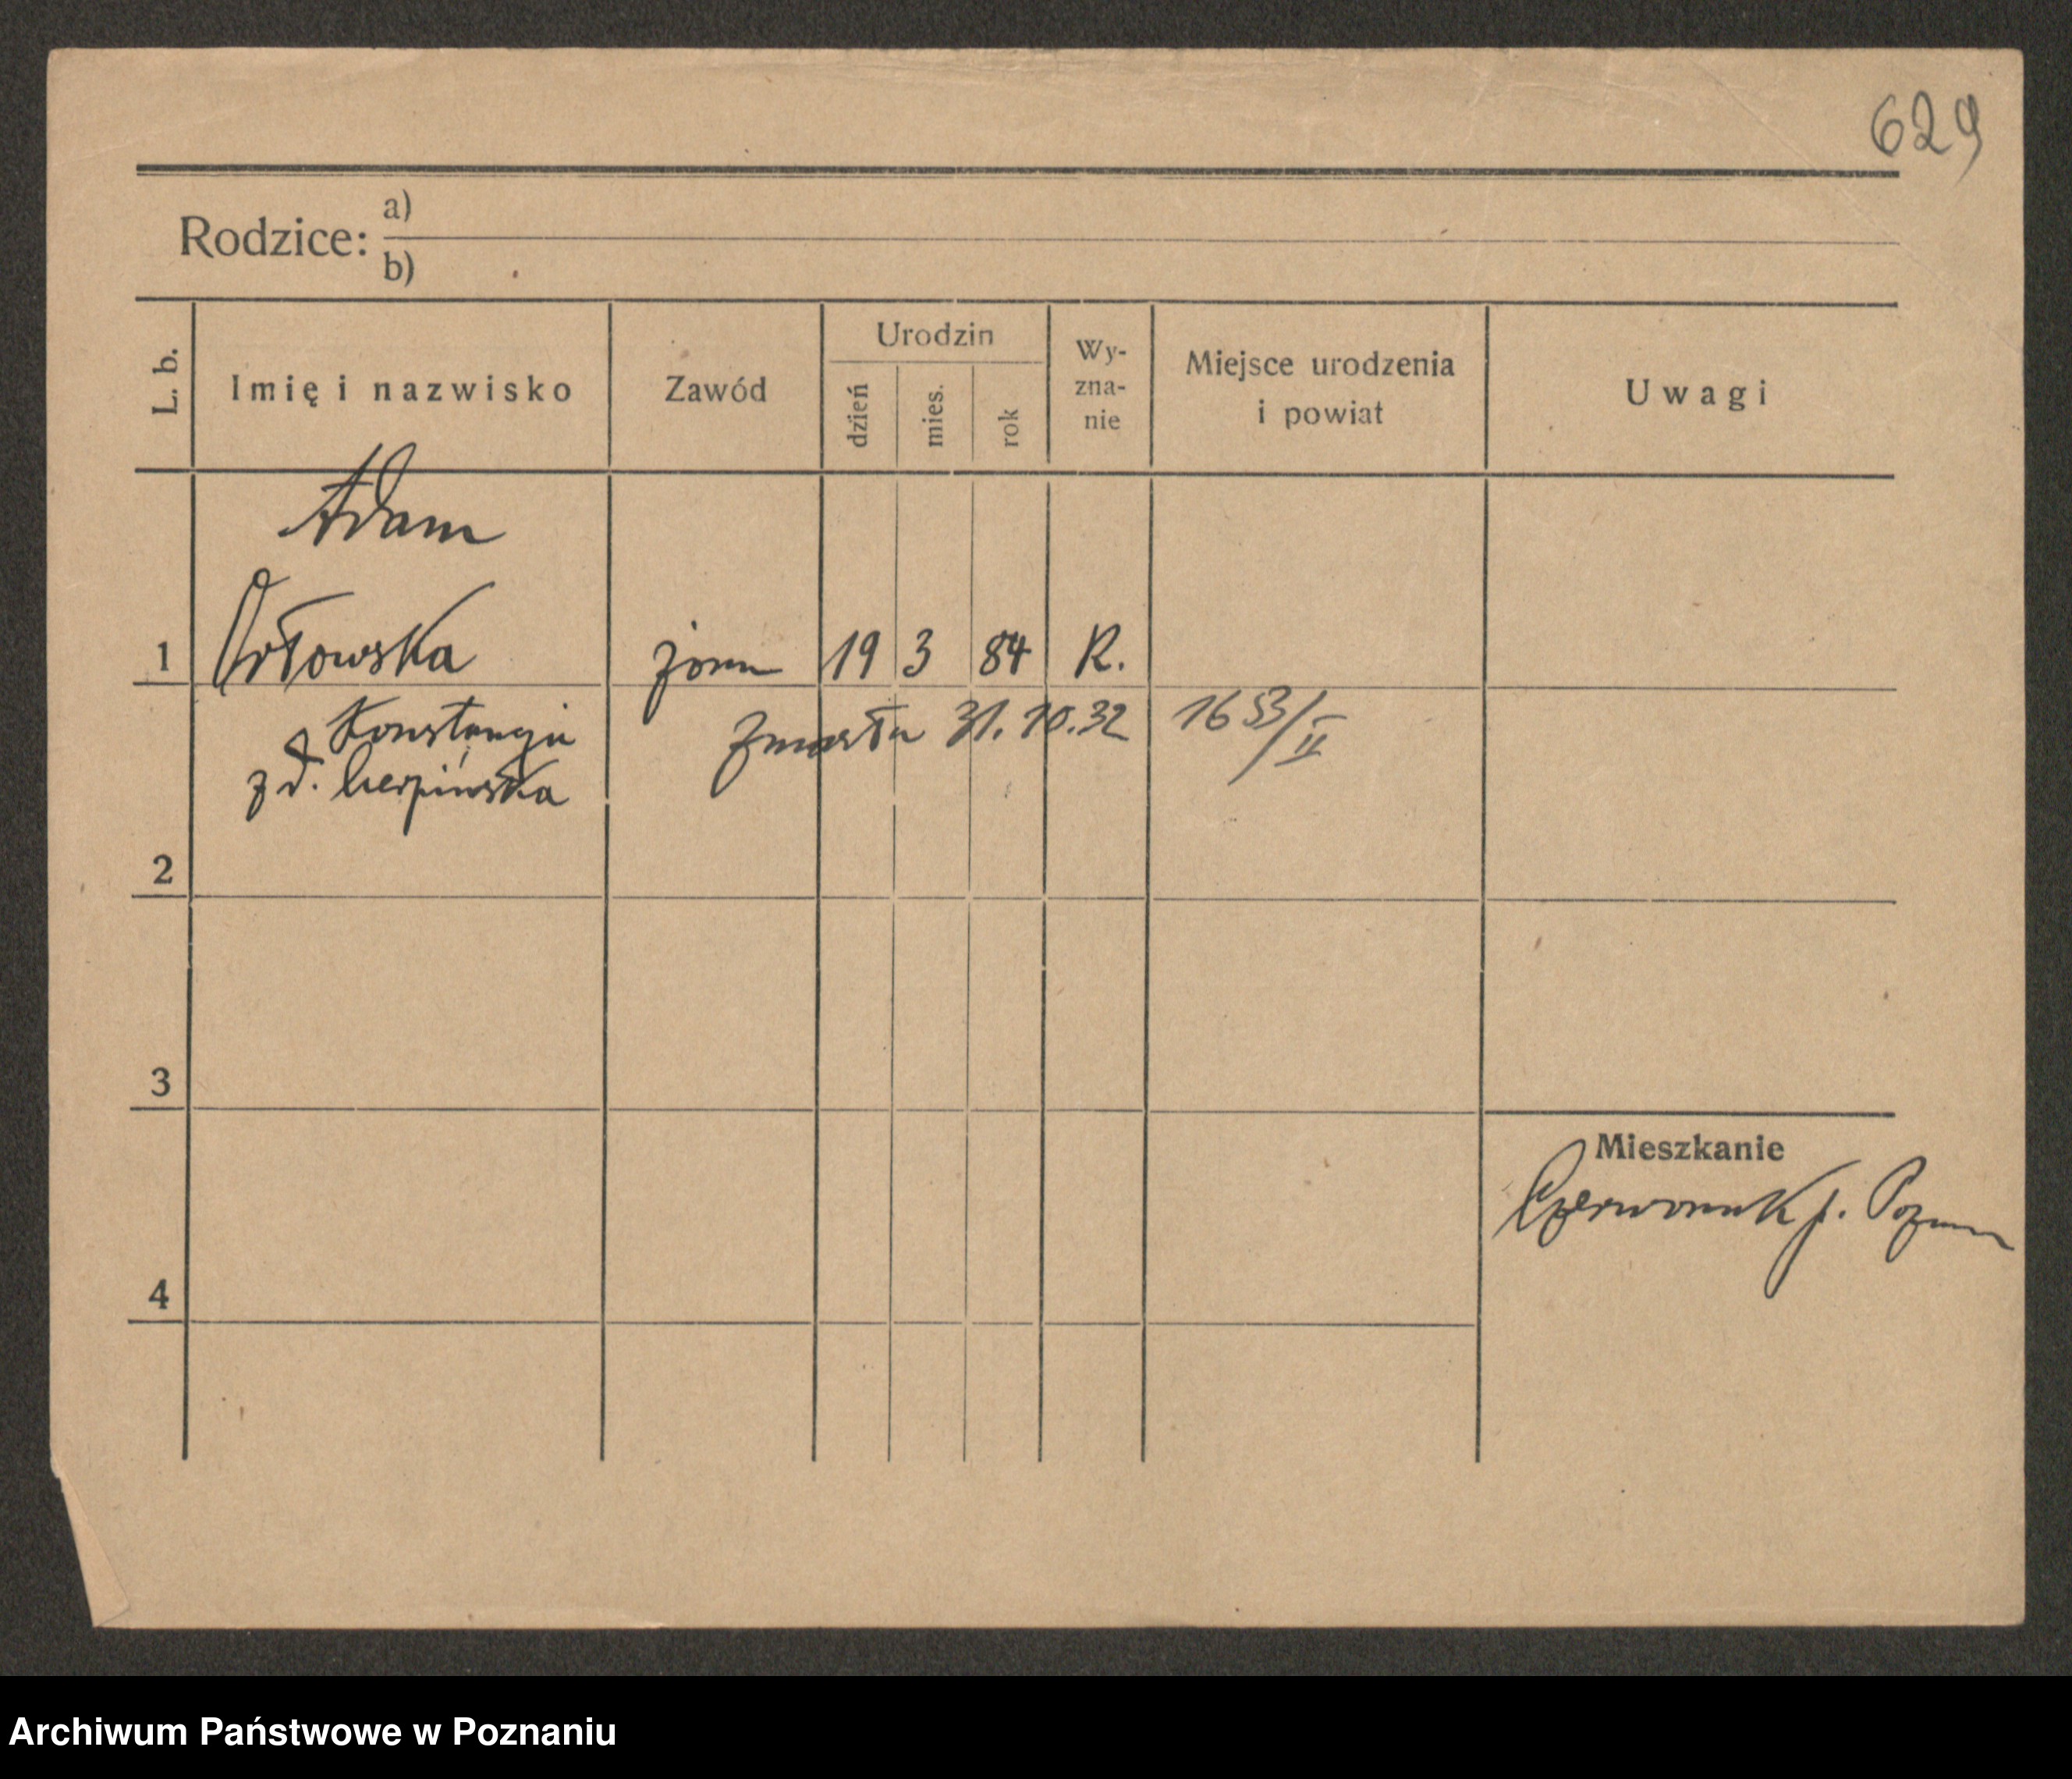 629
Rodzice:
a)
b)
L. b.
Imię i nazwisko
Zawód
Urodzin
dzień
mies.
rok
Wy-
zna-
nie
Miejsce urodzenia
i powiat
Uwagi
Adam
1 Orłowska żona 19 3 84 R.
Konstancja zmarła 31.10.32 1653/II
z d. Cierpińska
2
3
4
Mieszkanie
Czerwonak p. Poznań
Archiwum Państwowe w Poznaniu